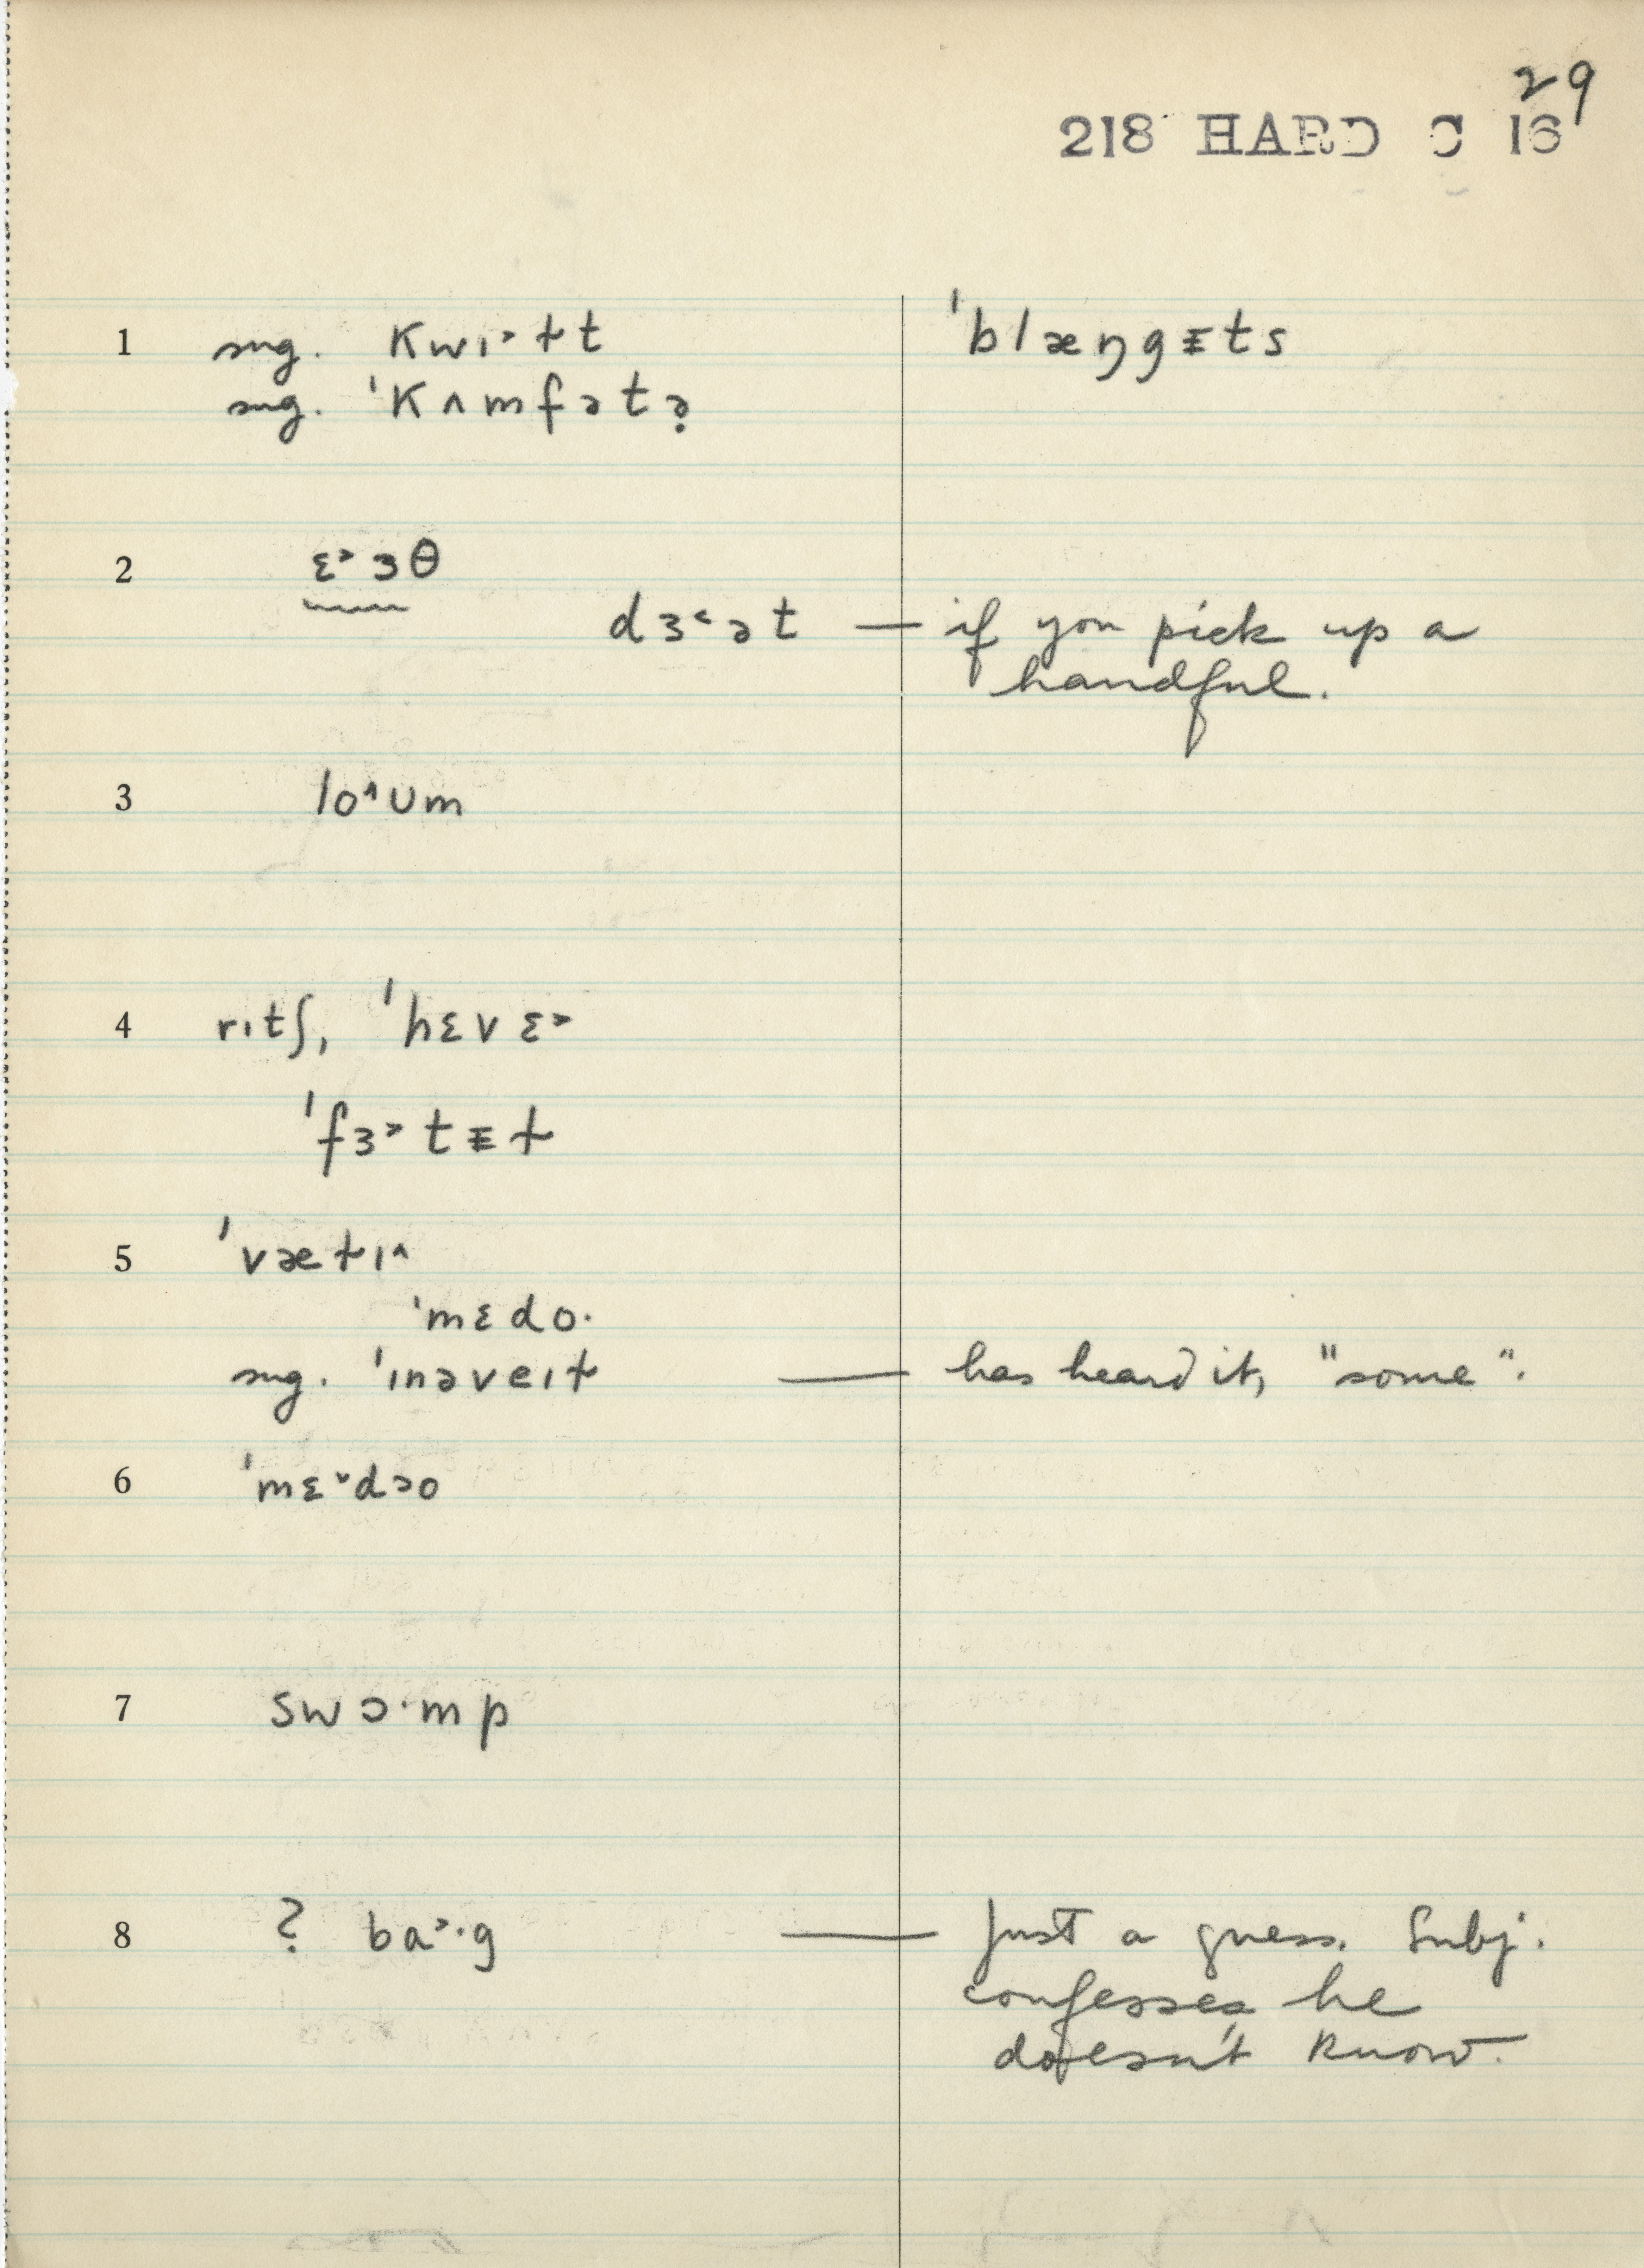 29
218 HARD C 16
1 sug. kwɪ˃ɫt 'blæŋgᵻts
sug. 'kʌmfətə̣
2 ɛ˃ɜθ
dɜ˂ət — if you pick up a
handful.
3 lo^ʊm
4 rɪtʃ, 'hɛvɛ˃
'fɜ˃tᵻɫ
5 'væɫɪ^
'mɛdo·
sug. 'ɪnəveɪɫ — has heard it, "some".
6 'mɛ˅dəo
7 swɔ·mp
8 ? ba˃·g — Just a guess. Subj.
confesses he
doesn't know.